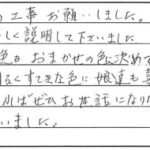 の工事お願いしました。
しく説明して下さいました
色がおまかせの色に決めて
明るくすてきな色に娘達も喜
ればぜひお世話になりた
いました。